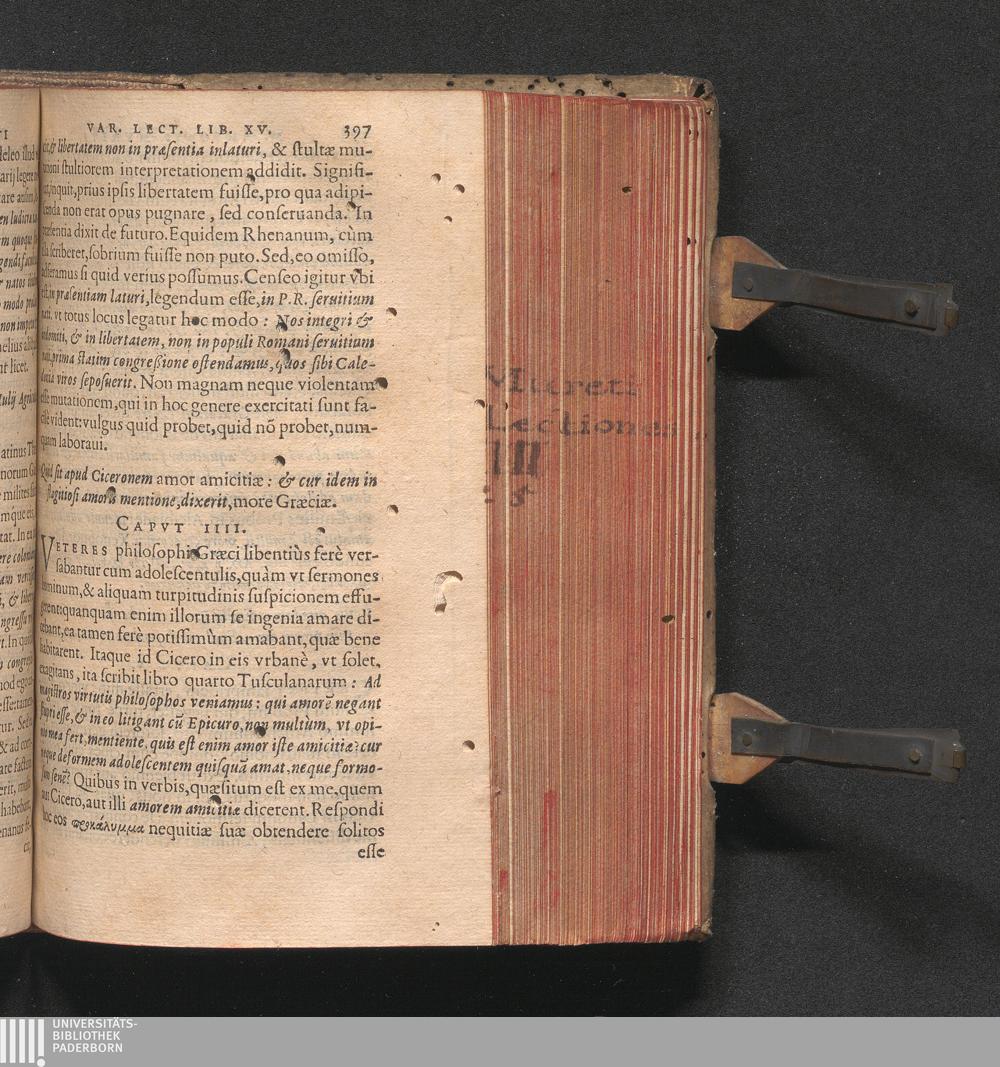 VAR. LECT. LIB. XV. 397
& libertatem non in præsentia inlaturi, & stultæ mu-
stultiorem interpretationem addidit. Signifi-
inquit, prius ipsis libertatem fuisse, pro qua adipi-
non erat opus pugnare, sed conseruanda. In
dixit de futuro. Equidem Rhenanum, cùm
scriberet, sobrium fuisse non puto. Sed, eo omisso,
si quid verius possumus. Censeo igitur vbi
in præsentiam laturi, legendum esse, in P. R. seruitium
vt totus locus legatur hoc modo: Nos integri &
& in libertatem, non in populi Romani seruitium
prima statim congreßione ostendamus, quos sibi Cale-
viros seposuerit. Non magnam neque violentam
esse mutationem, qui in hoc genere exercitati sunt fa-
vident: vulgus quid probet, quid nõ probet, num-
quam laboraui.
Quid sit apud Ciceronem amor amicitiæ: & cur idem in
flagitiosi amoris mentione, dixerit, more Græciæ.
CAPVT IIII.
VETERES philosophi Græci libentiùs ferè ver-
sabantur cum adolescentulis, quàm vt sermones
hominum, & aliquam turpitudinis suspicionem effu-
gerent: quanquam enim illorum se ingenia amare di-
cebant, ea tamen ferè potissimùm amabant, quæ bene
habitarent. Itaque id Cicero in eis vrbanè, vt solet,
exagitans, ita scribit libro quarto Tusculanarum: Ad
magistros virtutis philosophos veniamus: qui amorẽ negant
stupri esse, & in eo litigant cũ Epicuro, non multùm, vt opi-
nio mea fert, mentiente. quis est enim amor iste amicitiæ? cur
neque deformem adolescentem quisquã amat, neque formo-
sum senẽ? Quibus in verbis, quæsitum est ex me, quem
aut Cicero, aut illi amorem amicitiæ dicerent. Respondi
hoc eos προκάλυμμα nequitiæ suæ obtendere solitos
esse
Mureti
Lectiones
III
5
UNIVERSITÄTS-
BIBLIOTHEK
PADERBORN